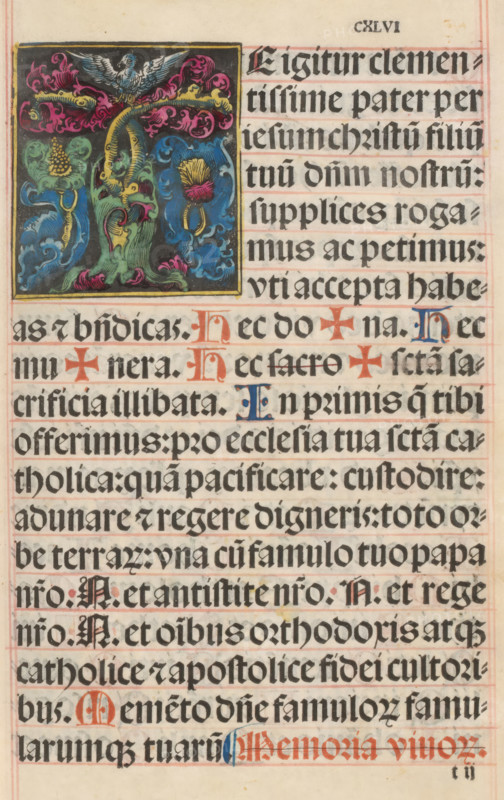 CXLVI
TE igitur clemen⸗
tissime pater per
iesum christū filiū
tuū dn̄m nostrū:
supplices roga⸗
mus ac petimus:
vti accepta habe⸗
as ⁊ bn̄dicas. Hec do ✠ na. Hec
mu ✠ nera. Hec sacro ✠ sctā sa⸗
crificia illibata. In primis q̄ tibi
offerimus: pro ecclesia tua sctā ca⸗
tholica: quā pacificare: custodire:
adunare ⁊ regere digneris: toto or⸗
be terraꝝ: vna cū famulo tuo papa
nr̄o: N. et antistite nr̄o. N. et rege
nr̄o. N. et oībus orthodoxis atqꝫ
catholice ⁊ apostolice fidei cultori⸗
bus. Memēto dn̄e famuloꝝ famu⸗
larumqꝫ tuarū Memoria viuoꝝ.
t ij